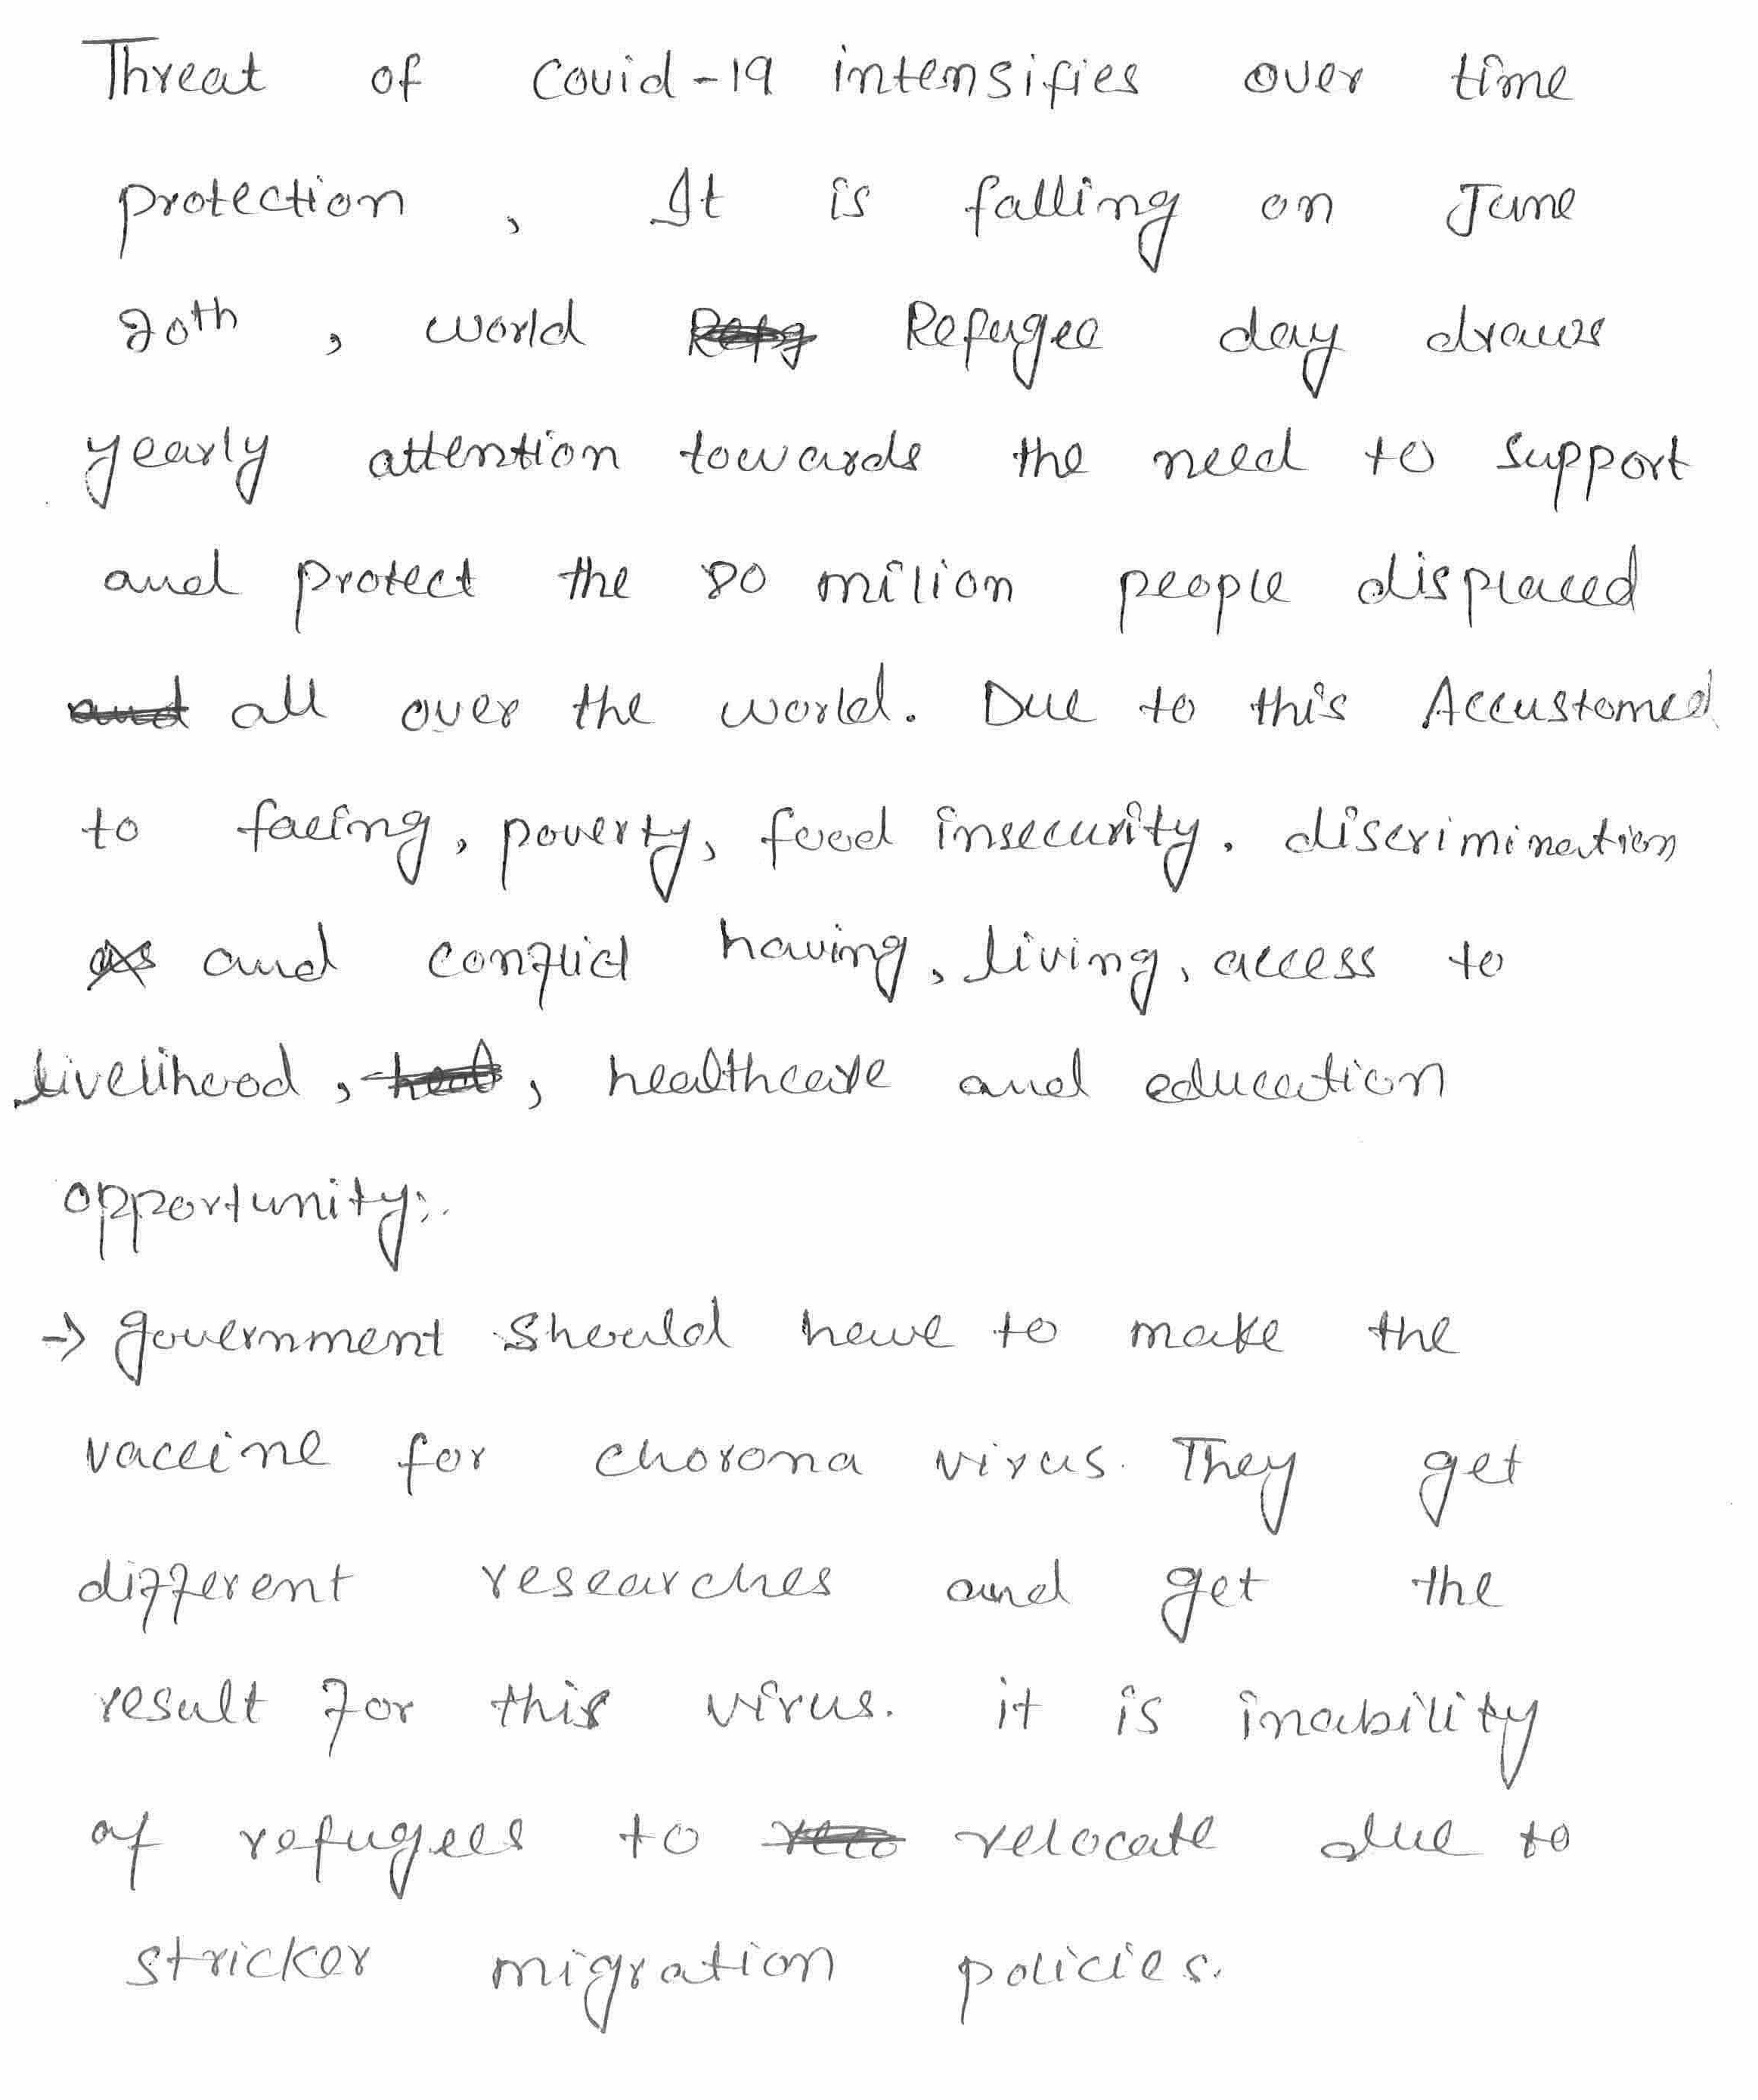 Threat of Covid-19 intensifies over time
protection, It is falling on June
20th, world Refugee day draws
yearly attention towards the need to support
and protect the 80 milion people displaced
all over the world. Due to this Accustomed
to facing, poverty, food insecurity. discrimination
and conflict having, living, access to
livelihood, , healthcare and education
opportunity:.
→ government should have to make the
vaccine for chorona virus. They get
different researches and get the
result for this virus. it is inability
of refugees to relocate due to
stricker migration policies.